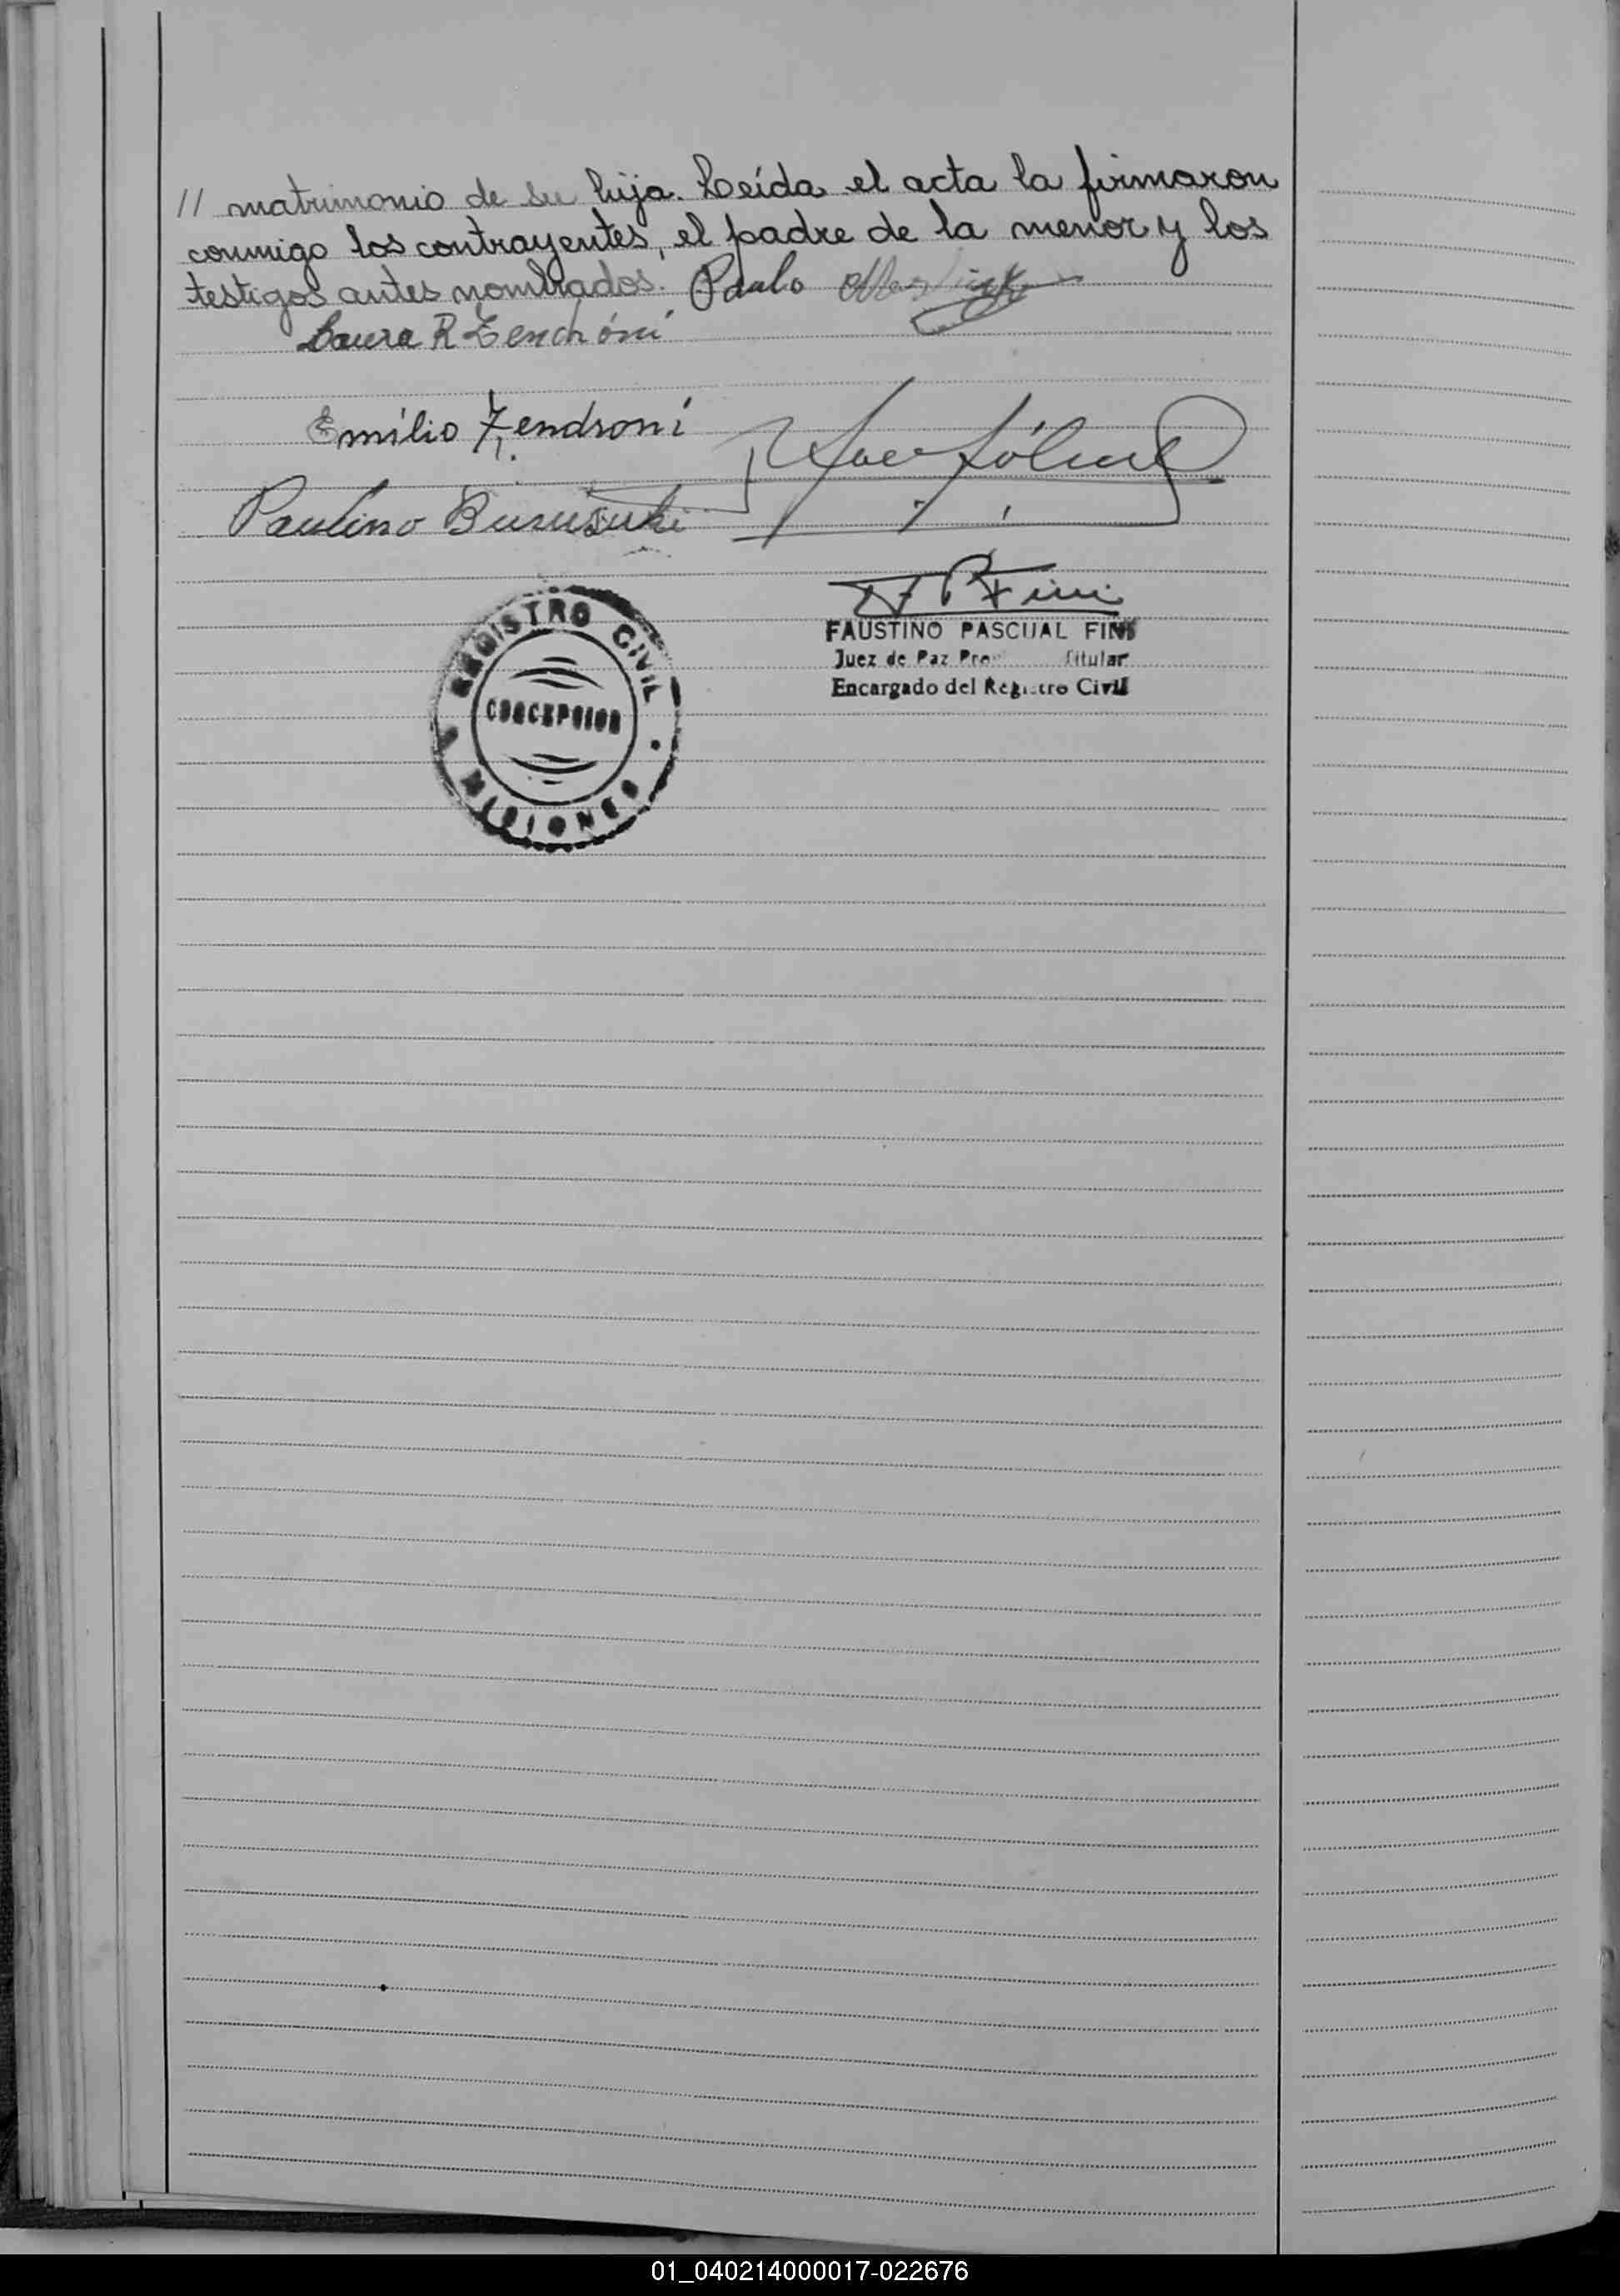 // matrimonio de su hija. Leída el acta la firmaron
conmigo los contrayentes, el padre de la menor y los
testigos antes nombrados. Paulo
Laura R Zendróni
Emílio Zendroni
Paulino
REGISTRO CIVIL
CONCEPCION
MISIONES
FAUSTINO PASCUAL FINI
Juez de Paz Titular
Encargado del Registro Civil
01_040214000017-022676